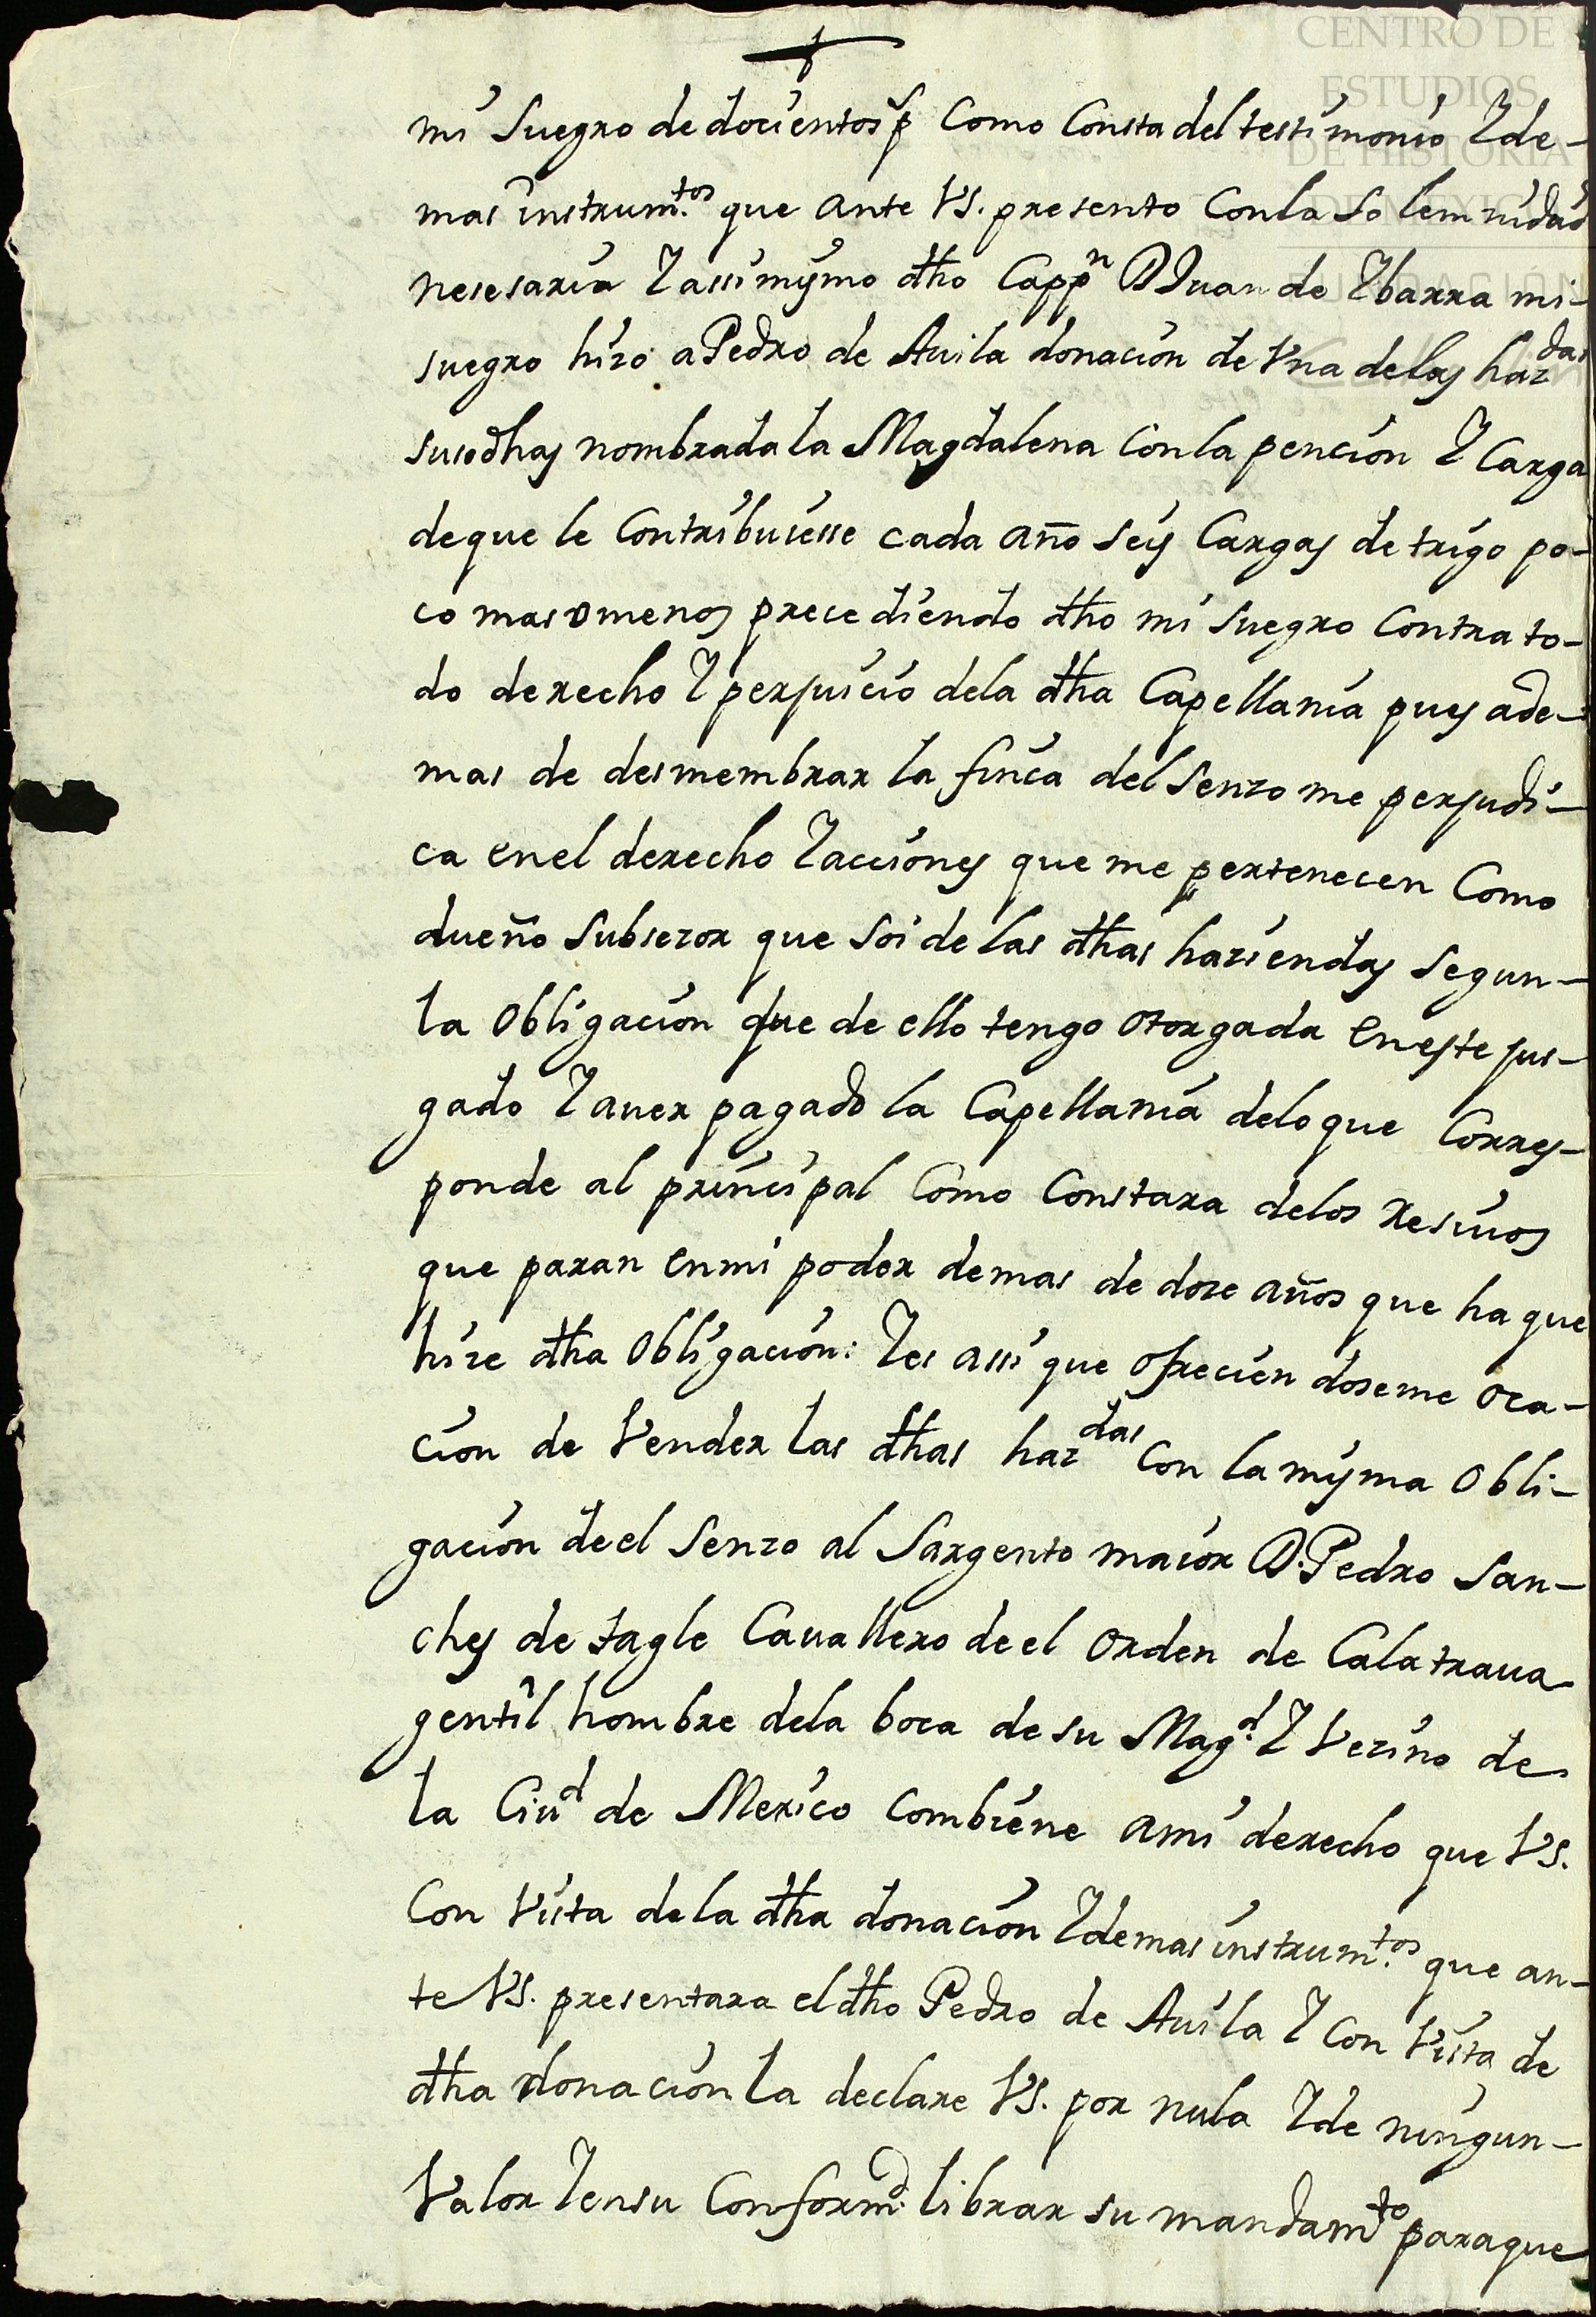 CENTRO DE
ESTUDIOS
DE HISTORIA
DE MEXICO
FUNDACIÓN
mi suegro de docientos p^s Como Consta del testimonio Y de-
mas instrum.^tos que ante VS. presento Con la Solemnidad
nesesaria Y assimysmo dho Capp^n D Juan de Ybarra mi-
suegro hizo a Pedro de Auila donacion de Vna de las haz^das
susodhas nombrada la Magdalena Con la pencion Y Carga
de que le Contribuiesse cada año seys Cargas de trigo po-
co mas o menos precediendo dho mi suegro Contra to-
do derecho Y perjuicio de la dha Capellania pues ade-
mas de desmembrar la finca del Senso me perjudi-
ca en el derecho Y acciones que me pertenecen Como
dueño Subsezor que Soi de las dhas haziendas Segun-
la Obligacion que de ello tengo Otorgada En este jus-
gado Y auer pagado la Capellania de lo que Corres-
ponde al principal Como Constara de los resiuos
que paran En mi poder de mas de doze años que ha que
hize dha Obligacion: Y es assi que Ofreciendoseme Oca-
cion de Vender las dhas haz^das Con la mysma Obli-
gacion de el Senzo al Sargento maior D. Pedro San-
ches de tagle Cauallero de el Orden de Calatraua
gentil hombre de la boca de su Mag^d. Y Vezino de
la Ciu^d de Mexico Combiene a mi derecho que VS.
Con Vista de la dha donacion Y demas instrum.^tos que an-
te VS. presentara el dho Pedro de Auila Y Con Vista de
dha donacion la declare VS. por nula Y de ningun-
Valor Y en su Conform^d. librar su mandam^to para que